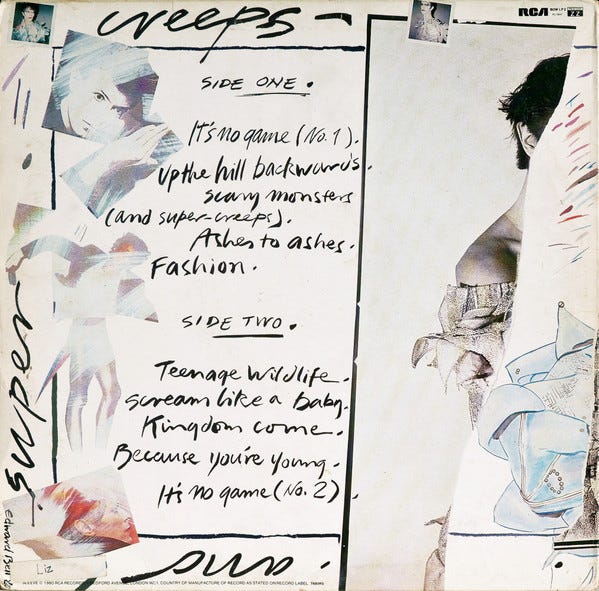 creeps -
RCA BOW LP 2
SIDE ONE.
It's no game (No. 1).
Up the hill backwards.
scary monsters
(and super-creeps).
Ashes to ashes.
Fashion.
SIDE TWO.
Teenage wildlife.
scream like a baby.
Kingdom come.
Because you're young.
It's no game (No. 2).
super
and
Edward Bell
Liz
1980 RCA RECORDS, BEDFORD AVENUE, LONDON WC1. COUNTRY OF MANUFACTURE OF RECORD AS STATED ON RECORD LABEL.